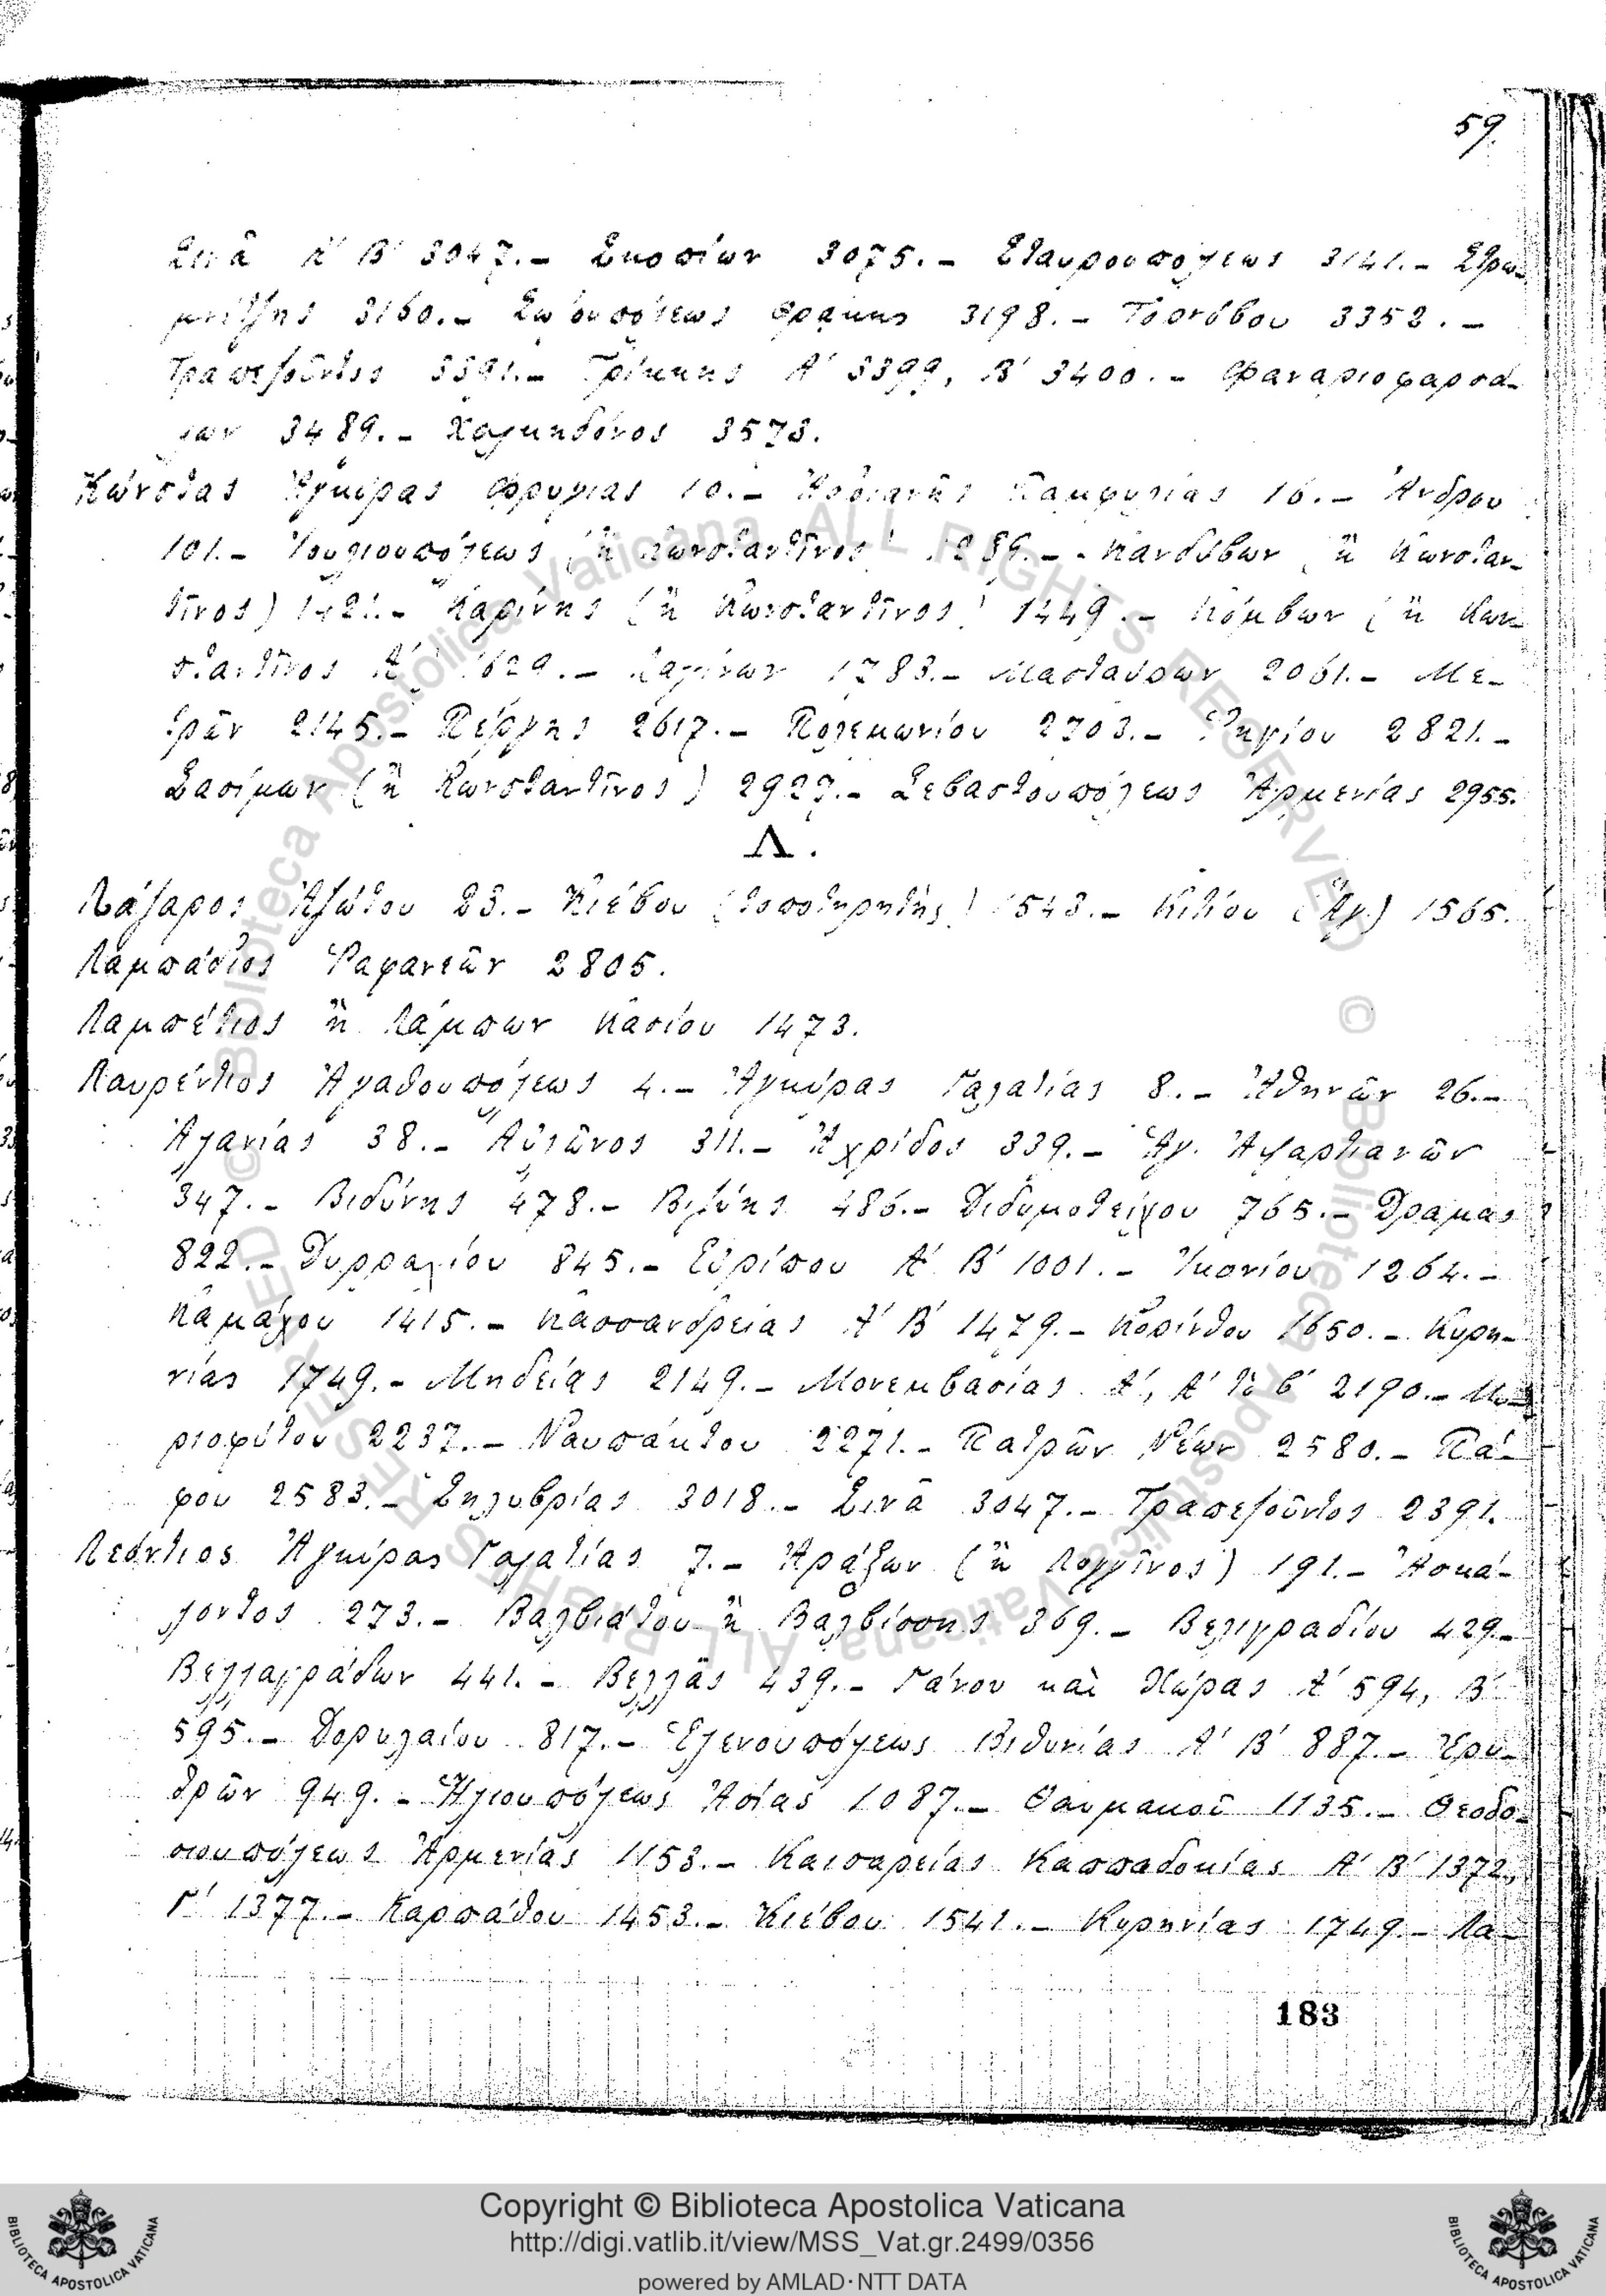 59.
Σινᾶ Α΄ Β΄ 3047.- Σκοπίων 3075.- Σταυρουπόλεως 3141.- Στρω-
μνίτζης 3160.- Σωζουπόλεως Θρᾴκης 3198.- Τορνόβου 3352.-
Τραπεζοῦντος 3391.- Τρίκκης Α΄ 3399, Β΄ 3400.- Φαναριοφαρσά-
λων 3489.- Χαλκηδόνος 3573.
Κώνστας Ἀγκύρας Φρυγίας 10.- Παμφυλίας 16.- Ἄνδρου
101.- Ἰουλιουπόλεως (ἢ Κωνσταντῖνος) 1289.- Κανδύβων (ἢ Κωνσταν-
τῖνος) 1421.- Καρίνης (ἢ Κωνσταντῖνος) 1449.- Κόμβων (ἢ Κων-
σταντῖνος Α΄) 1629.- Λαγίνων 1783.- Μασταύρων 2061.- Με-
τρῶν 2145.- Πέργης 2617.- Πολεμωνίου 2703.- Ῥηγίου 2821.-
Σασίμων (ἢ Κωνσταντῖνος) 2927.- Σεβαστουπόλεως Ἀρμενίας 2955.
Λ.
Λάζαρος Ἀζώτου 23.- Κιέβου (τοποτηρητής) 1543.- Κιτίου (Ἁγ.) 1565.
Λαμπάδιος Ῥαφανεῶν 2805.
Λαμπέτιος ἢ Λάμπων Κασίου 1473.
Λαυρέντιος Ἀγαθουπόλεως 4.- Ἀγκύρας Γαλατίας 8.- Ἀθηνῶν 26.-
Ἀλανίας 38.- Αὐλῶνος 311.- Ἀχρίδος 339.- Ἁγ. Ἀψαρτιανῶν
347.- Βιδύνης 478.- Βιζύης 486.- Διδυμοτείχου 765.- Δράμας
822.- Δυρραχίου 845.- Εὐρίπου Α΄ Β΄ 1001.- Ἰκονίου 1264.-
Καμάχου 1415.- Κασσανδρείας Α΄ Β΄ 1479.- Κορίνθου 1650.- Κυρη-
νίας 1749.- Μηδείας 2149.- Μονεμβασίας Α΄, Α΄ τὸ β΄ 2190.- Μυ-
ριοφύτου 2237.- Ναυπάκτου 2271.- Πατρῶν Νέων 2580.- Πά-
φου 2583.- Σηλυβρίας 3018.- Σινᾶ 3047.- Τραπεζοῦντος 2391.
Λεόντιος Ἀγκύρας Γαλατίας 7.- Ἀράξων (ἢ Λογγῖνος) 191.- Ἀσκά-
λοντος 273.- Βαλβιάτου ἢ Βαλβίσσης 369.- Βελιγραδίου 429.-
Βελλαγράδων 441.- Βελλᾶς 439.- Γάνου καὶ Χώρας Α΄ 594, Β΄
595.- Δορυλαίου 817.- Ἑλενουπόλεως Βιθυνίας Α΄ Β΄ 887.- Ἐρυ-
θρῶν 949.- Ἡλιουπόλεως Ἀσίας 1087.- Θαυμακοῦ 1135.- Θεοδο-
σιουπόλεως Ἀρμενίας 1153.- Καισαρείας Καππαδοκίας Α΄ Β΄ 1372,
Γ΄ 1377.- Καρπάθου 1453.- Κιέβου 1541.- Κυρηνίας 1749.- Λα-
183
Copyright © Biblioteca Apostolica Vaticana
http://digi.vatlib.it/view/MSS_Vat.gr.2499/0356
powered by AMLAD·NTT DATA
BIBLIOTECA APOSTOLICA VATICANA
BIBLIOTECA APOSTOLICA VATICANA